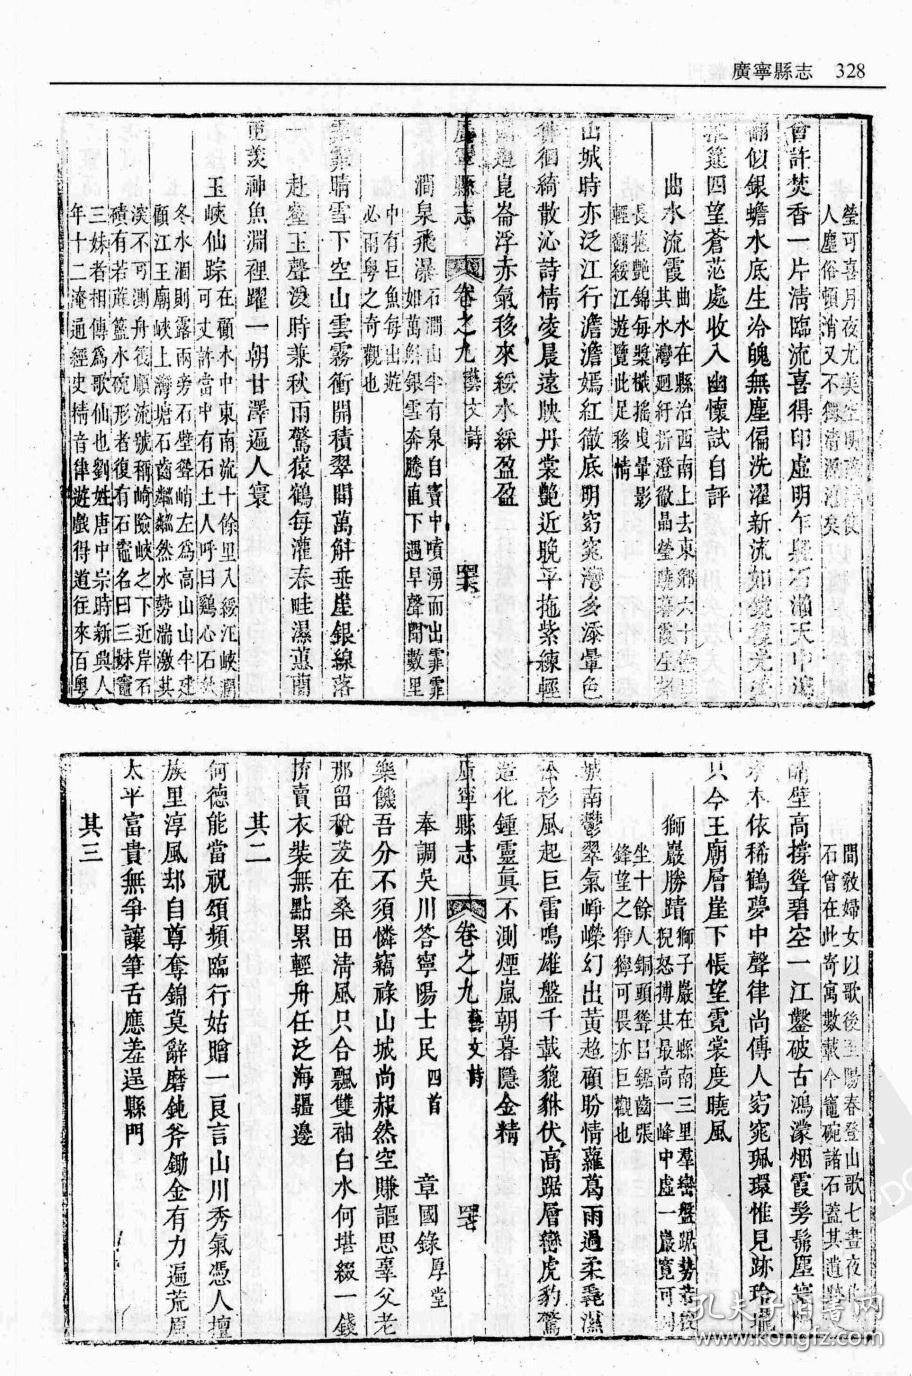 廣寧縣志 328
瑩可喜月夜尤美空明
人塵俗頓消又不
會許焚香一片清臨流喜得印虛明午
翻似銀蟾水底生冷魄無塵偏洗濯新流如鏡
四望蒼茫處收入幽懷試自評
曲水流霞曲水在縣治西南上去東鄉六十
其水灣迴紆折澄徹晶瑩
長拖艷錦每漿檥搖曳暈影
輕翻綏江遊覽此足移情
山城時亦泛江行澹澹嫣紅徹底明窈窕灣多添暈色
徘徊綺散沁詩情凌晨遠映丹裳艷近晚平拖紫練輕
崑崙浮赤氣移來綏水綵盈盈
廣寧縣志 卷之九 藝文詩
澗泉飛瀑石澗山半有泉自竇中噴湧而出霏霏
如萬斛銀雪奔騰直下遇旱聲聞數里
中有巨魚每出遊
必雨粵之奇觀也
晴雪下空山雲霧衝開積翠間萬斛垂崖銀線落
一赴壑玉聲潺時兼秋雨驚猿鶴每灌春畦濕蕙蘭
更羨神魚淵裡躍一朝甘澤遍人寰
玉峽仙踪在顧水中東南流十餘里入綏江峽濶
可丈許當中有石土人呼曰鷄心石
冬水涸則露兩旁石壁聳峭左爲高山山半建
顧江王廟峽上灣塘石齒齦齦然水勢湍激其
深不可測舟行順流號稱崎險峽之下近岸石
磧有若蔴籃水碗形者復有石竈名曰三妹竈
三妹者相傳爲歌仙也劉姓唐中宗時新興人
年十二淹通經史精音律遊戲得道往來百粵
間敎婦女以歌後至陽春登山歌七晝夜
石曾在此寄寓數載至今籠碗諸石蓋其遺
峭壁高撐聳碧空一江鑿破古鴻濛烟霞髣髴塵寰
木依稀鶴夢中聲律尚傳人窈窕珮環惟見跡玲瓏
只今王廟層崖下悵望霓裳度曉風
獅巖勝蹟獅子巖在縣南三里羣巒盤踞勢
猊怒搏其最高一峰中虛一巖寬可
坐十餘人銅頭聳日鋸齒張
鋒望之猙獰可畏亦巨觀也
城南鬱翠氣崢嶸幻出黃越顧盼情蘿葛雨過柔毳濕
松杉風起巨雷鳴雄盤千載貔貅伏高踞層巒虎豹驚
造化鍾靈眞不測煙嵐朝暮隱金精
廣寧縣志 卷之九 藝文詩
奉調吳川答寧陽士民四首 章國錄厚堂
樂饑吾分不須憐竊祿山城尚赧然空賺謳思辜父老
那留稅茇在桑田淸風只合飄雙袖白水何堪綴一錢
擠賣衣裝無點累輕舟任泛海疆邊
其二
何德能當祝頌頻臨行姑贈一良言山川秀氣憑人擅
族里淳風却自尊奪錦莫辭磨鈍斧鋤金有力遍荒原
太平富貴無爭讓筆舌應羞逞縣門
其三